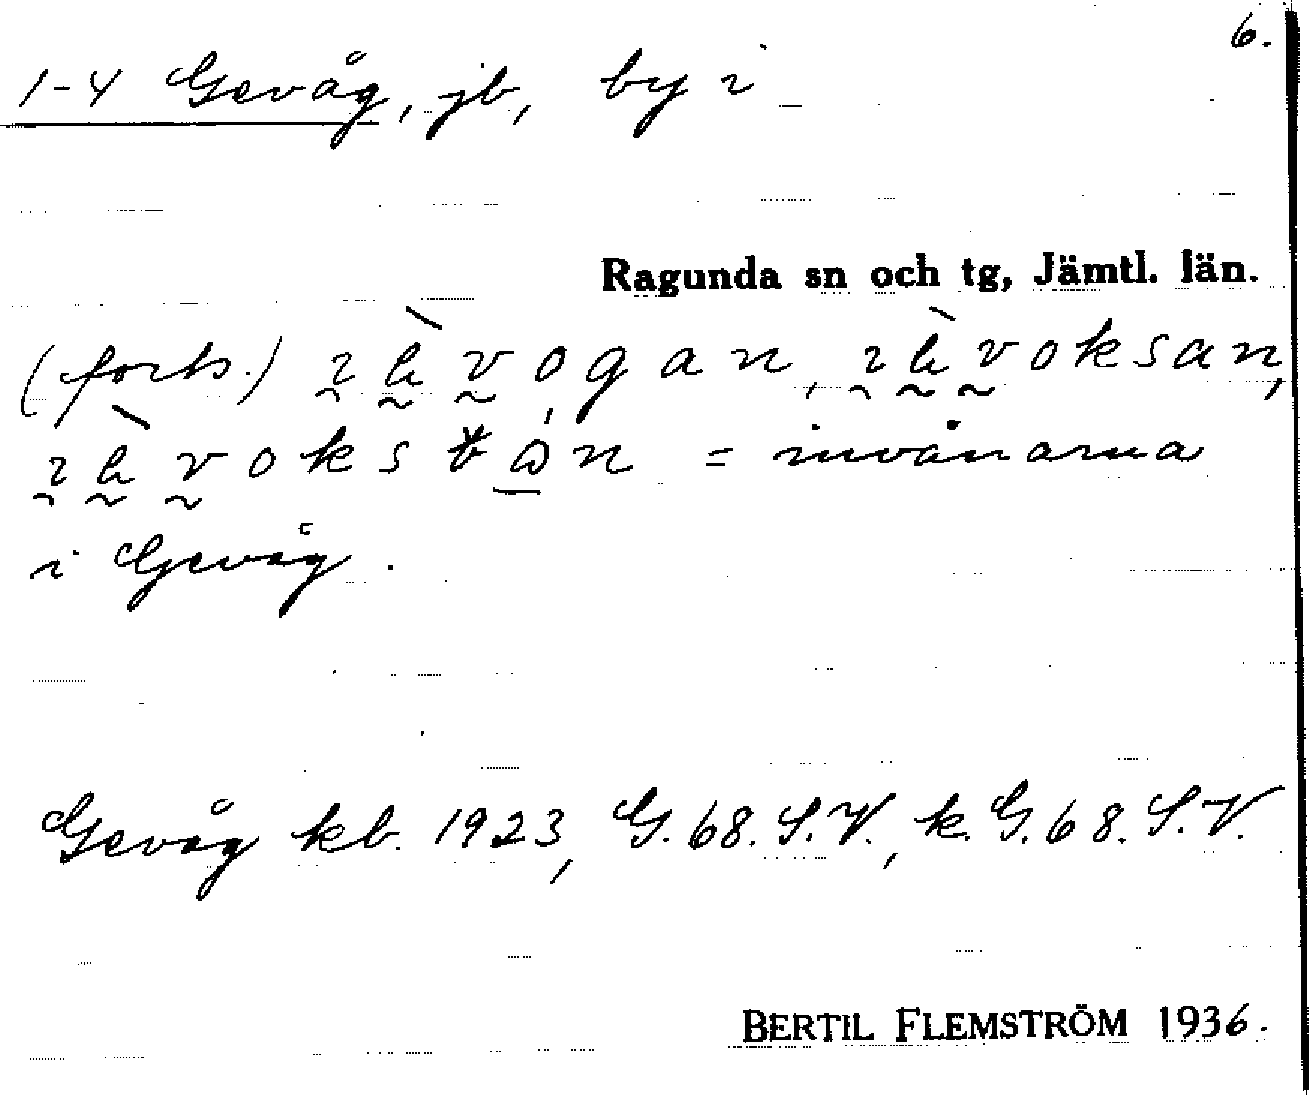 6.
1-4 Gevåg, jb, by i
Ragunda sn och tg, Jämtl. län.
(forts.)
= invånarna
i Gevåg.
Gevåg kb. 1923, G. 68. S.V., k. G. 68. S.V.
BERTIL FLEMSTRÖM 1936.